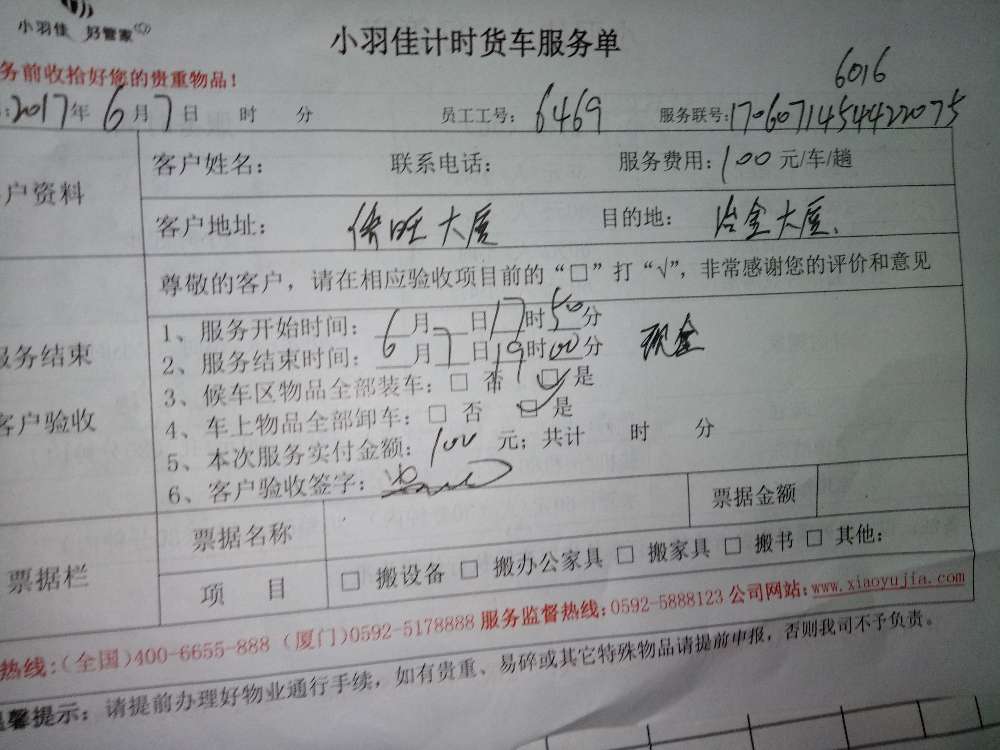 小羽佳 好管家
小羽佳计时货车服务单
务前收拾好您的贵重物品！
6016
:2017年6月7日 时 分 员工工号：6469 服务联号：1706071454422075
户资料
客户姓名： 联系电话： 服务费用：100元/车/趟
客户地址：侨旺大厦 目的地：冶金大厦、
尊敬的客户，请在相应验收项目前的“□”打“√”，非常感谢您的评价和意见
服务结束
客户验收
1、服务开始时间：6月7日17时50分
2、服务结束时间：6月7日19时00分 现金
3、候车区物品全部装车：□ 否 □ 是
4、车上物品全部卸车：□ 否 □ 是
5、本次服务实付金额：100元；共计 时 分
6、客户验收签字：
票据栏
票据名称 票据金额
项 目 □ 搬设备 □ 搬办公家具 □ 搬家具 □ 搬书 □ 其他：
热线：（全国）400-6655-888（厦门）0592-5178888 服务监督热线：0592-5888123 公司网站：www.xiaoyujia.com
温馨提示：请提前办理好物业通行手续，如有贵重、易碎或其它特殊物品请提前申报，否则我司不予负责。